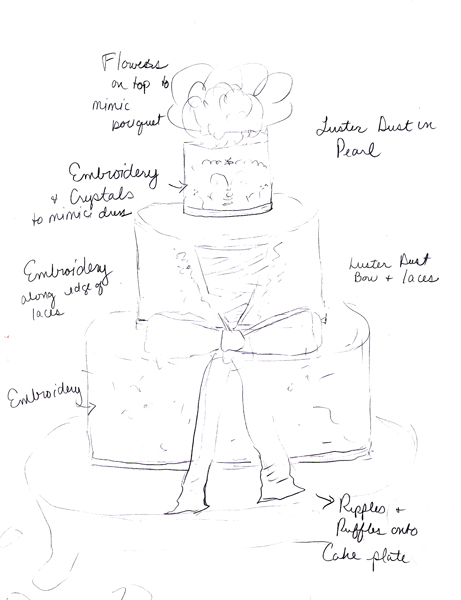 Flowers
on top to
mimic
bouquet
Luster Dust in
Pearl
Embroidery
& Crystals
to mimic dress
Embroidery
along edge of
laces
Luster Dust
Bow + laces
Embroidery
Ripples +
Ruffles onto
Cake plate